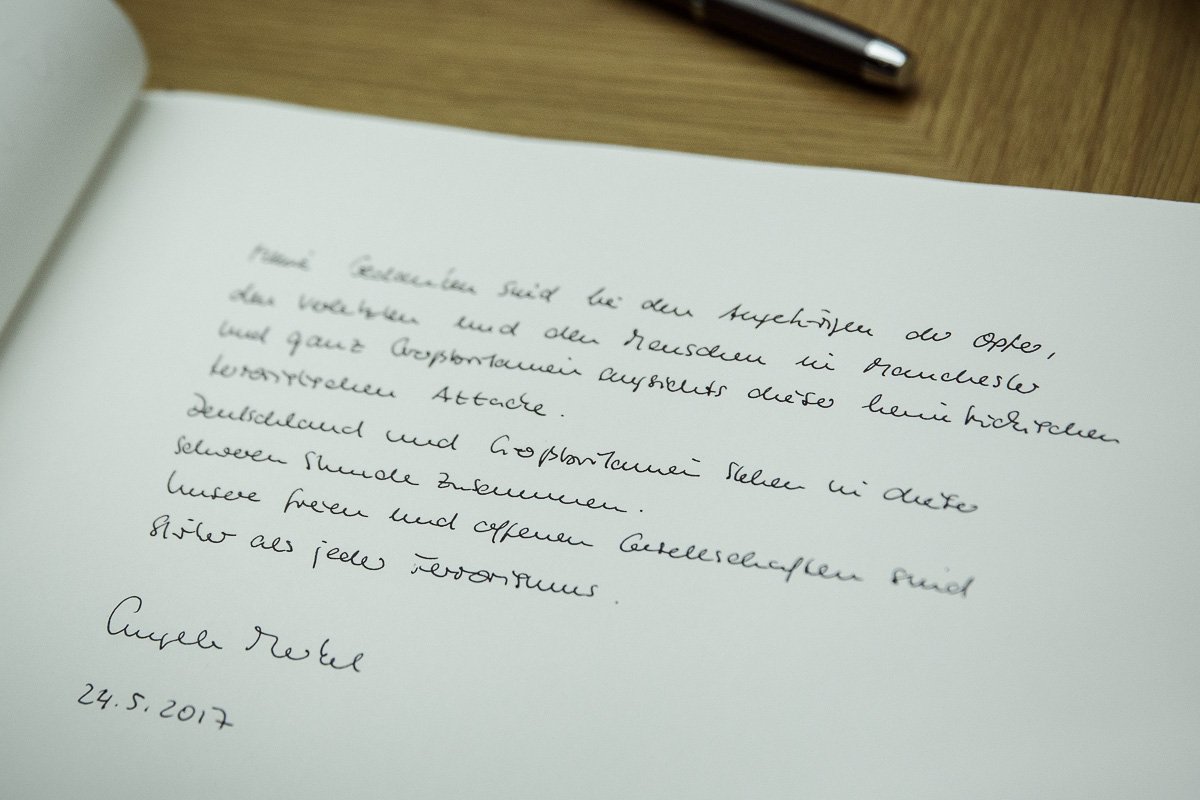 Meine Gedanken sind bei den Angehörigen der Opfer,
den Verletzten und den Menschen in Manchester
und ganz Großbritannien angesichts dieser heimtückischen
terroristischen Attacke.
Deutschland und Großbritannien stehen in dieser
schweren Stunde zusammen.
Unsere freien und offenen Gesellschaften sind
stärker als jeder Terrorismus.
Angela Merkel
24.5.2017